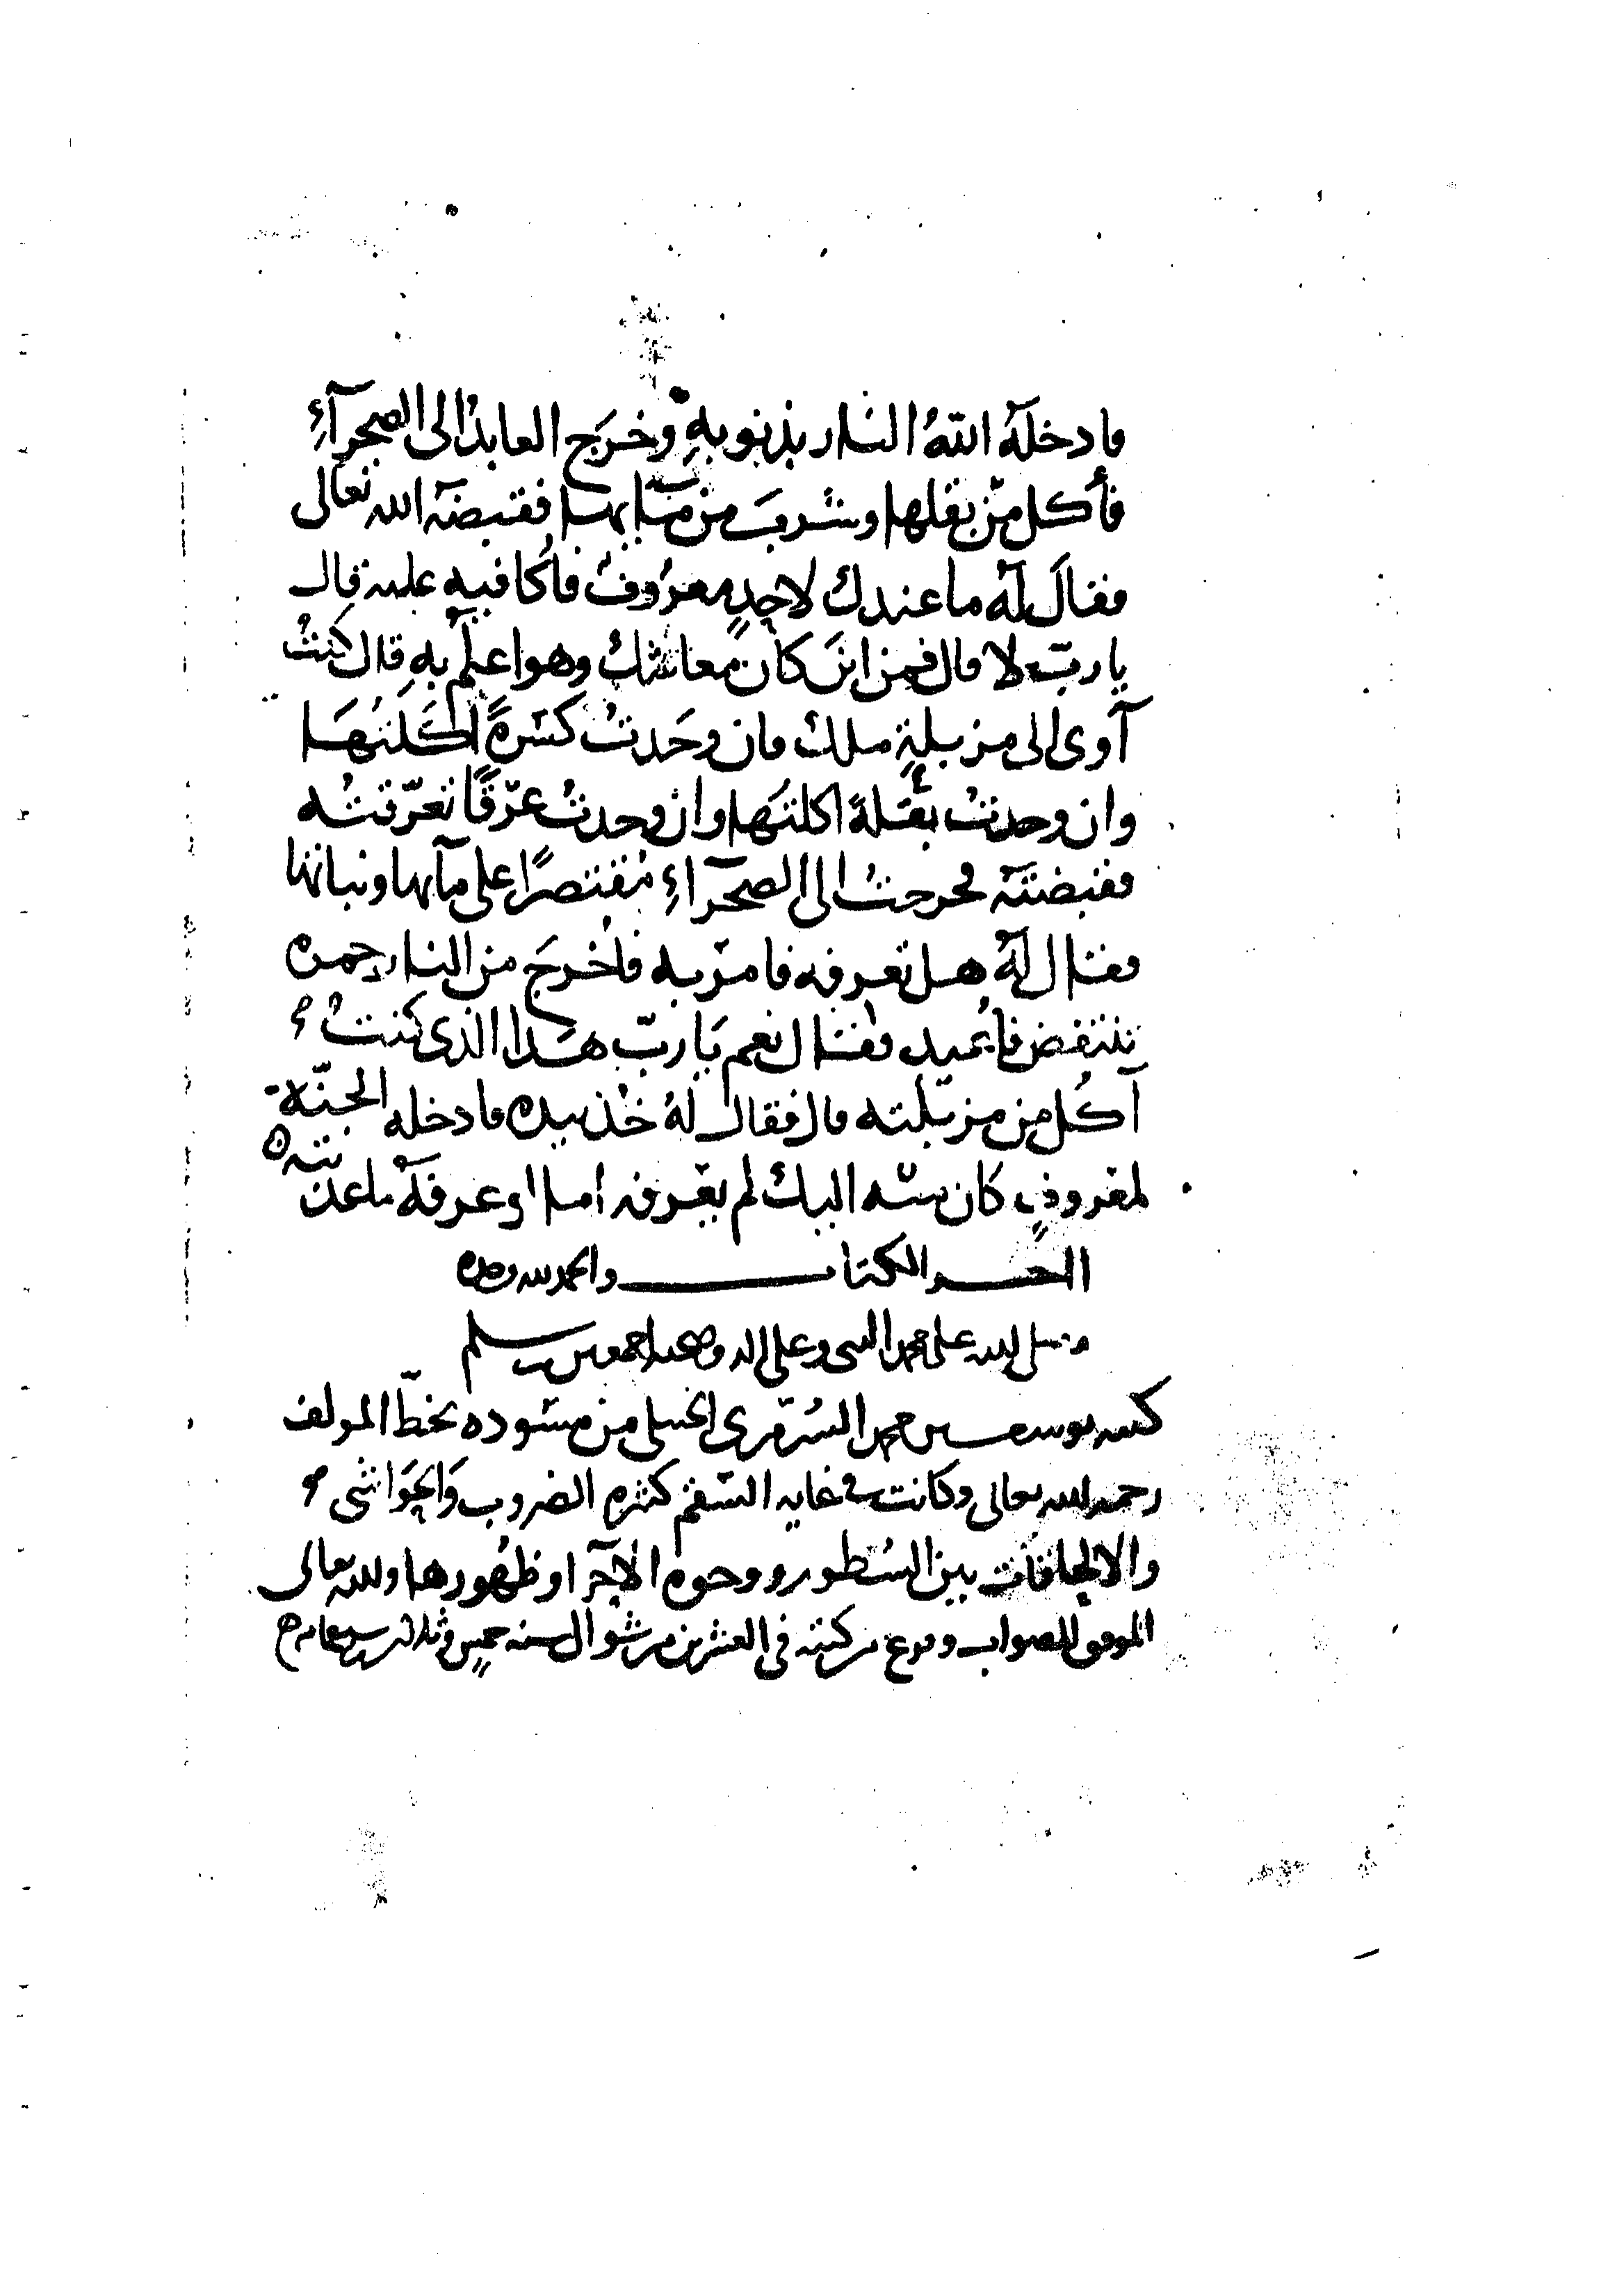 فادخلهُ اللهُ النار بذنوبهِ وخرَج العابدُ الى الصحرآءِ
فأكل من بقلها وشربَ من مآيها فقبضهُ الله تعالى
فقالَ لهُ ما عندك لاحدٍ معروفٌ فأُكافيه عليه قال
يا ربّ لا قال فمن اينَ كان معاشك وهو اعلم بهِ قال كنتُ
آوى الى مزبلةِ ملك فان وجَدتُ كسَرةً اكلتهَا
وان وجدتُ بقلةً اكلتهَا وان وجدتُ عرْقًا تعرّقتُه
فقبضتَهُ فخرجتُ الى الصحرآءِ مُقتصرًا على مآيها ونباتها
فقال لهُ هل تعرفه فامر به فاُخرجَ من النار جمره
تنتفض فاُعيد فقال نعم يَا ربّ هَذا الذى كنتُ
آكُل من مزبلته قال فقال لهُ خُذ بيده فادخله الجنّة
لمعروفٍ كان منه اليك لم يعْرفه اما لو عرفهُ ما عذبته
اخر الكتاب والحمد لله وحده
وصلى الله على محمد النبى وعلى اله وصحبه اجمعين وسلم
كتبه يوسف بن محمد السُرّمرى الحنبلى من مسْوده بخطّ المولف
رحمه الله تعالى وكانت فى غايه السّقم كثيره الضروب وَالحَوَاشى
والالحاقات بين السُطور ووجوه الآجر او ظهُورها والله تعالى
الموفق للصواب وفرغ من كتبه فى العشرين من شوال سنه خمسٍ وثلاثين وسبعمايه